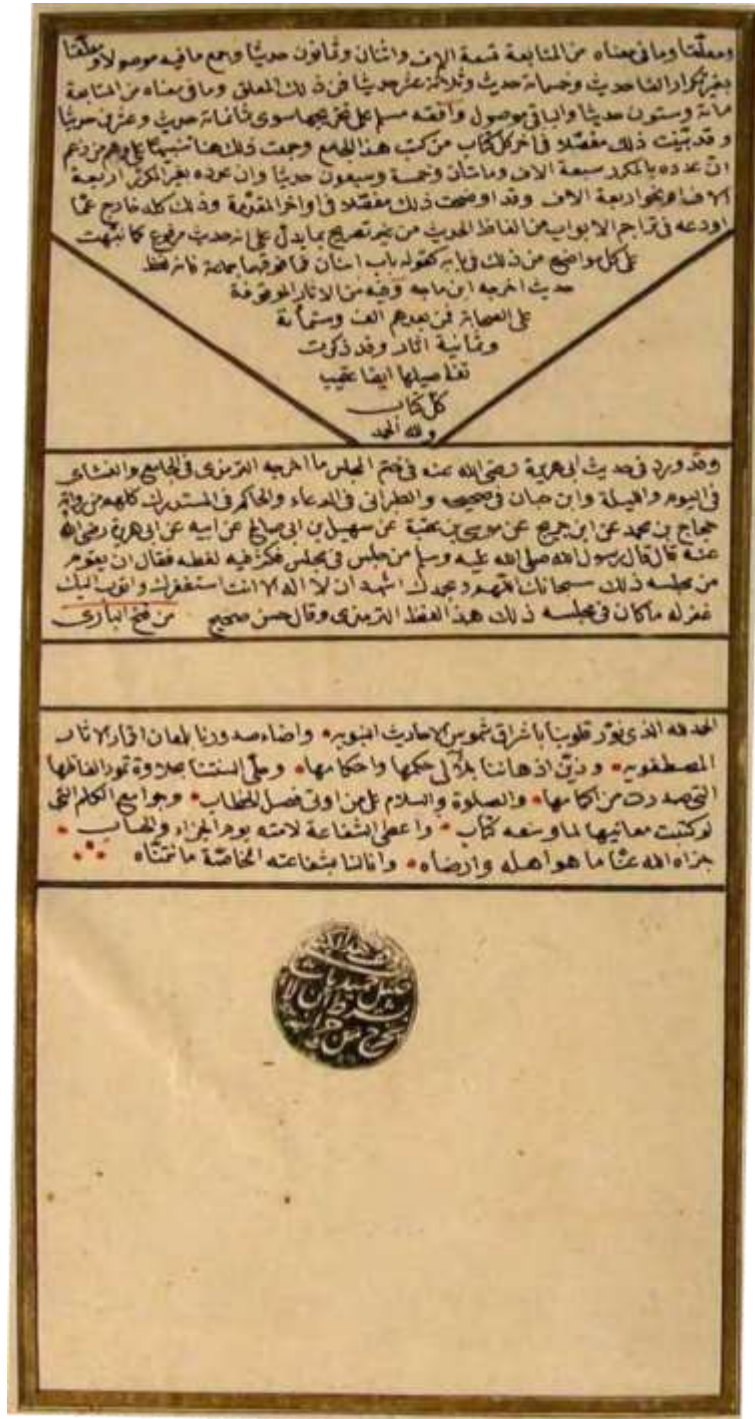 ومعلّقا وما فى معناه من المتابعة تسعة الاف واثنان وثمانون حديثا وجمع ما فيه موصولا ومعلّقا
بغير تكرار الفا حديث وخمسمائة حديث وثلاثة عشر حديثا فمن ذلك المعلق وما فى معناه من المتابعة
مائة وستون حديثا والباقى موصول وافقه مسلم على تخريجها سوى ثمانمائة حديث وعشرين حديثا
وقد بيّنت ذلك مفصّلا فى اخر كل كتاب من كتب هذا الجامع وجمعت ذلك هنا تنبيها على وهم من زعم
انّ عدده بالمكرر سبعة الاف ومائتان وخمسة وسبعون حديثا وان عدده بغير المكرّر اربعة
الاف او نحو اربعة الاف وقد اوضحت ذلك مفصّلا فى اواخر المقدّمة وذلك كله خارج عمّا
اودعه فى تراجم الابواب من الفاظ الحديث من غير تصريح بما يدلّ على انه حديث مرفوع كما نبّهت
على كل مواضع من ذلك فى بابه كقوله باب اثنان فما فوقهما جماعة فانه لفظ
حديث اخرجه ابن ماجه وفيه من الاثار الموقوفة
على الصحابة فمن بعدهم الف وستمائة
وثمانية اثار وقد ذكرت
تفاصيلها ايضا عقيب
كلّ كتاب
ولله الحمد
وقد ورد فى حديث ابى هريرة رضى الله عنه فى ختم المجلس ما اخرجه الترمذى فى الجامع والنسائى
فى اليوم والليلة وابن حبان فى صحيحه والطبرانى فى الدعاء والحاكم فى المستدرك كلهم من رواية
حجاج بن محمد عن ابن جريج عن موسى بن عقبة عن سهيل بن ابى صالح عن ابيه عن ابى هريرة رضى الله
عنه قال قال رسول الله صلى الله عليه وسلم من جلس فى مجلس فكثر فيه لغطه فقال ان يقوم
من مجلسه ذلك سبحانك اللهم وبحمدك اشهد ان لا اله الا انت استغفرك واتوب اليك
غفر له ما كان فى مجلسه ذلك هذا لفظ الترمذى وقال حسن صحيح من فتح البارى
الحمد لله الذى نوّر قلوبنا باشراق شموس الاحاديث النبويه • واضاء صدورنا بلمعان اقمار الاثار
المصطفويه • وزيّن اذهاننا بلآلى حكمها واحكامها • وحلّى السنتنا بحلاوة تمور الفاظها
التى صدرت من اكمامها • والصلوة والسلام على من اوتى فصل الخطاب • وجوامع الكلم التى
لو كتبت معانيها لما وسعه كتاب • واعطى الشفاعة لامته يوم الجزاء والحساب •
جزاه الله عنّا ما هو اهله وارضاه • وانالنا بشفاعته الخاصّة ما نتمنّاه